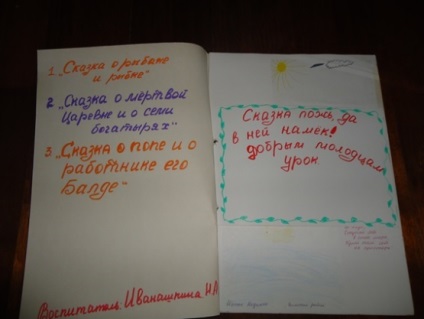 1 „Сказка о рыбаке
и рыбке"
2 „Сказка о мёртвой
Царевне и о семи
богатырях"
3 „Сказка о попе и о
работнике его
Балде"
Воспитатель: Иванашкина Н А
Сказка ложь, да
в ней намёк!
добрым молодцам
урок